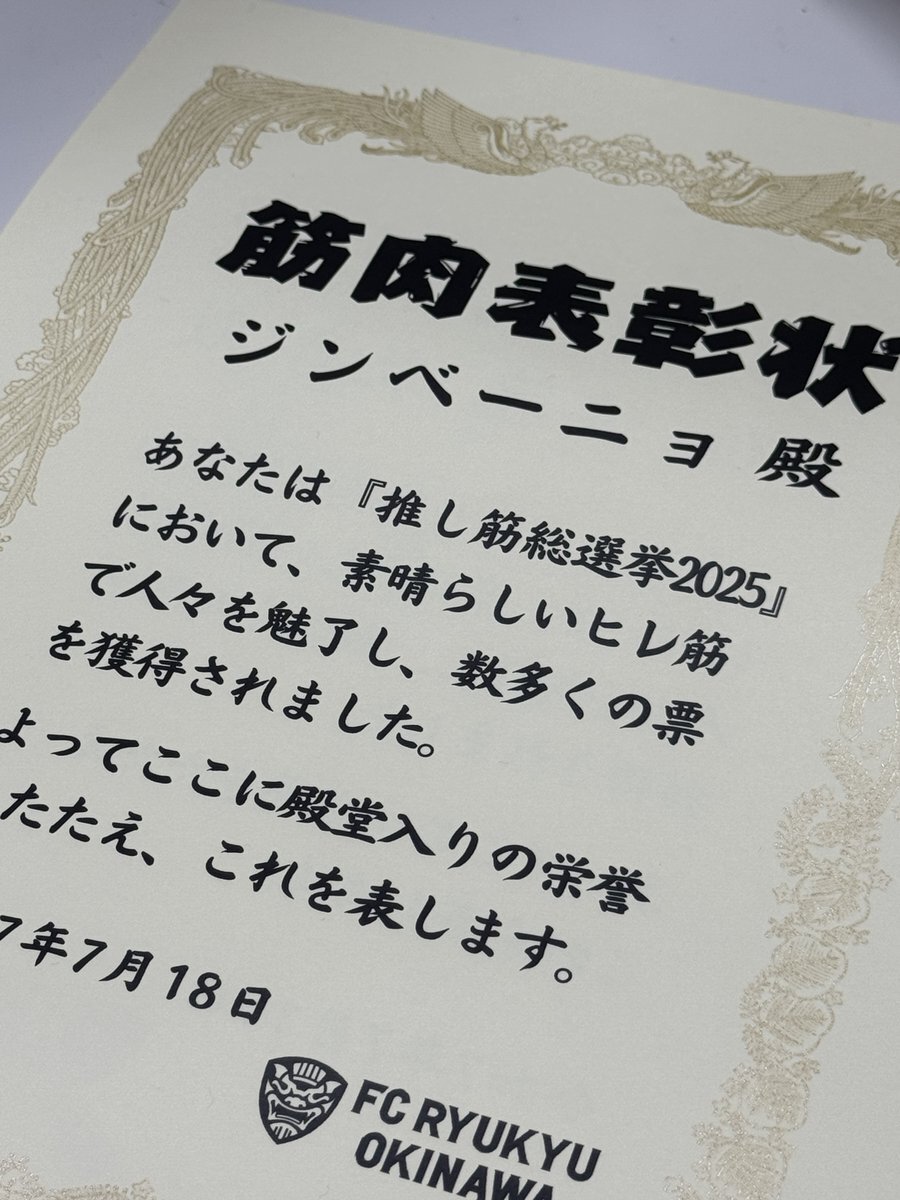 筋肉表彰状
ジンベーニョ 殿
あなたは『推し筋総選挙2025』
において、素晴らしいヒレ筋
で人々を魅了し、数多くの票
を獲得されました。
よってここに殿堂入りの栄誉
たたえ、これを表します。
7年7月18日
FC RYUKYU
OKINAWA